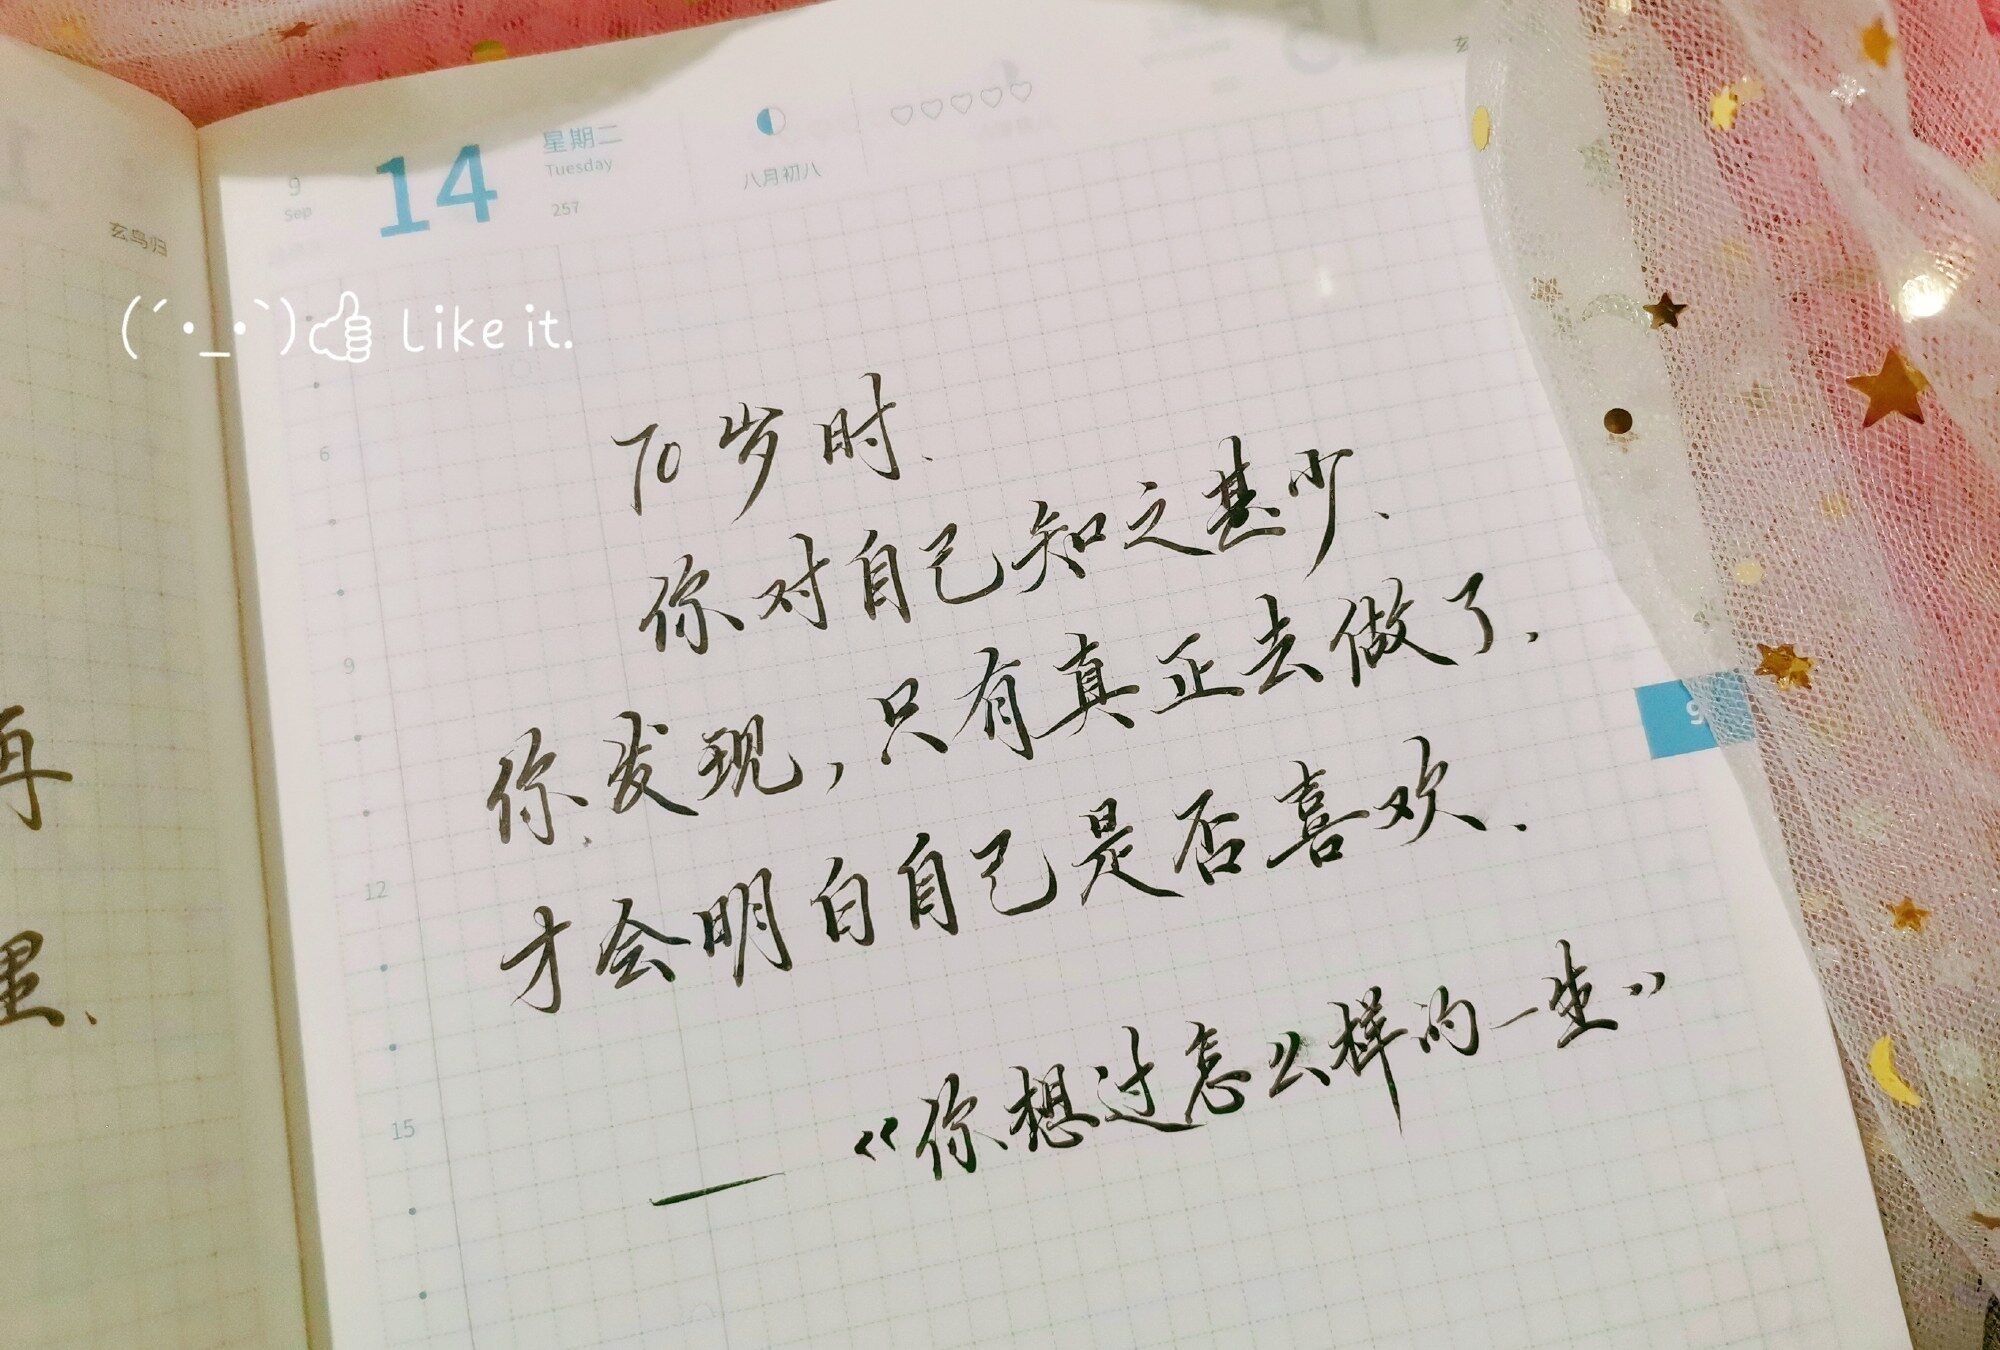 9
Sep
14
星期二
Tuesday
257
八月初八
玄鸟归
(´•_•`) Like it.
70岁时.
你对自己知之甚少、
你发现,只有真正去做了.
才会明白自己是否喜欢.
—《你想过怎么样的一生》
6
9
12
15
9
再
里.